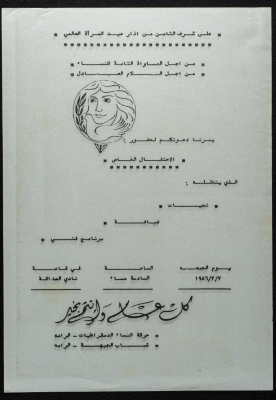 على شرف الثامن من اذار عيد المرأة العالمي
من اجل المساواة التامة للنساء
من اجل السلام العادل
يسرنا دعوتكم لحضور :
الاحتفال الخاص
الذي يتخلله :
تحيات
ضيافة
برنامج فني
يوم الجمعه الساعة في قاعة
١٩٨٦/٣/٧ السادسة مساء نادي الصداقة
كل عام وانتم بخير
حركة النساء الدمقراطيات - الرامه
شباب الجبهة - الرامه